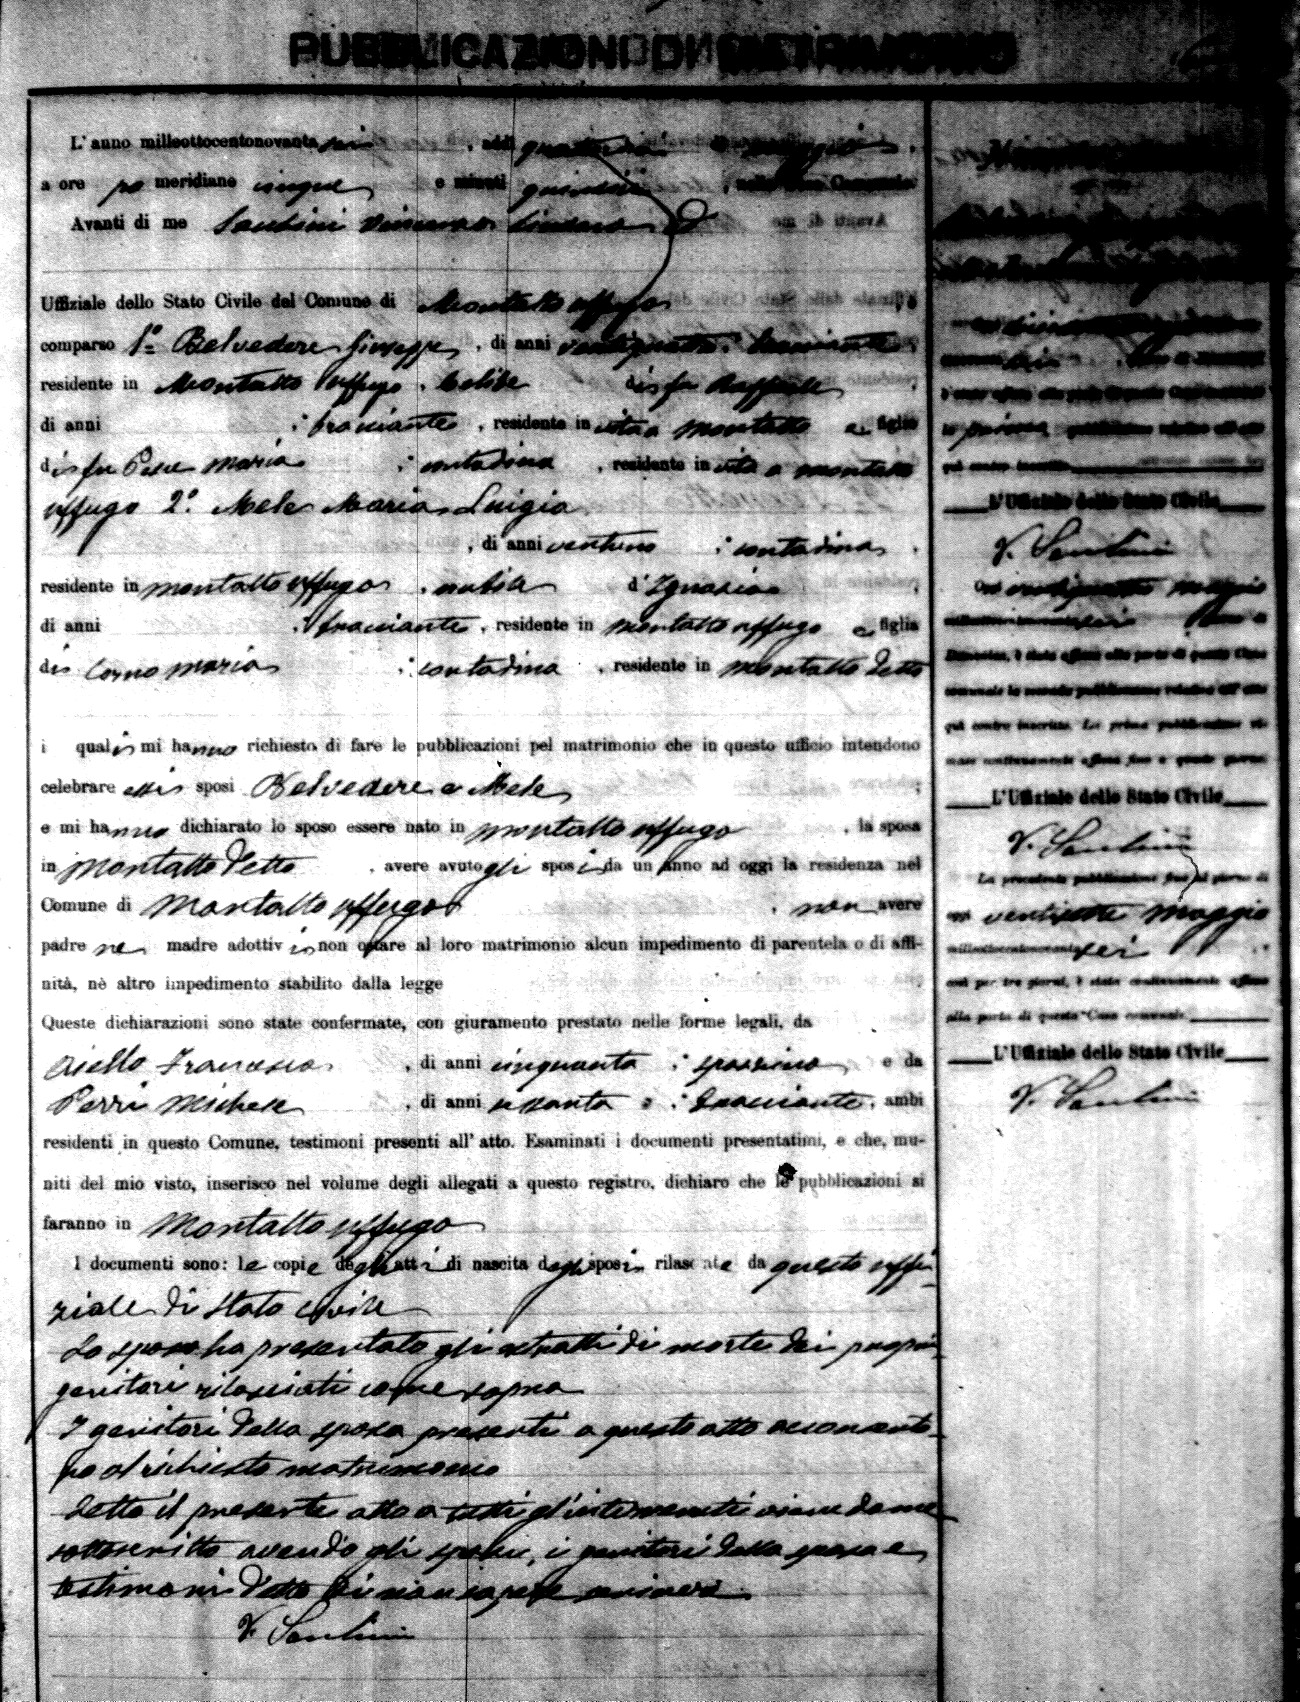 PUBBLICAZIONI DI MATRIMONIO
L'anno milleottocentonovanta sei , addì di maggio ,
a ore po meridiane cinque e minuti quindici , nella Casa Comunale
Avanti di me Santini Vincenzo Sindaco
Uffiziale dello Stato Civile del Comune di Montalto Uffugo
comparso 1º Belvedere Giuseppe , di anni ventiquattro , bracciante ,
residente in Montalto Uffugo , celibe di fu Raffaele ,
di anni ; bracciante , residente in vita a Montalto e figlio
di fu Pesce Maria ; contadina , residente in vita a Montalto
Uffugo 2º Mele Maria Luigia
, di anni ventuno ; contadina ,
residente in Montalto Uffugo , nubile d'Ignazio ,
di anni ; bracciante , residente in Montalto Uffugo e figlia
di Corno Maria ; contadina , residente in Montalto detto
i quali mi hanno richiesto di fare le pubblicazioni pel matrimonio che in questo ufficio intendono
celebrare essi sposi Belvedere e Mele ;
e mi hanno dichiarato lo sposo essere nato in Montalto Uffugo , la sposa
in Montalto detto , avere avuto gli sposi da un anno ad oggi la residenza nel
Comune di Montalto Uffugo , non avere
padre ne madre adottivi non ostare al loro matrimonio alcun impedimento di parentela o di affi-
nità, nè altro impedimento stabilito dalla legge
Queste dichiarazioni sono state confermate, con giuramento prestato nelle forme legali, da
Aiello Francesco , di anni cinquanta ; spazzino e da
Perri Michele , di anni sessanta ; bracciante , ambi
residenti in questo Comune, testimoni presenti all'atto. Esaminati i documenti presentatimi, e che, mu-
niti del mio visto, inserisco nel volume degli allegati a questo registro, dichiaro che le pubblicazioni si
faranno in Montalto Uffugo
I documenti sono: le copie degli atti di nascita degli sposi rilasciate da questo uffi-
ziale di Stato civile
Lo sposo ha presentato gli estratti di morte dei propri
genitori rilasciati come sopra
I genitori della sposa presenti a questo atto acconsento-
no al richiesto matrimonio
Letto il presente atto a tutti gl'intervenuti viene da me
sottoscritto avendo gli sposi, i genitori della sposa e
testimoni detto di non sapere scrivere
V. Santini
Oggi diciassette maggio
sei
la prima pubblicazione relativa all'atto
qui contro inscritto
L'Uffiziale dello Stato Civile
V. Santini
Oggi ventiquattro maggio
sei
Domenica, è stata affissa alla porta di questa Casa
comunale la seconda pubblicazione relativa all'atto
qui contro inscritto. La prima pubblicazione ri-
mase continuamente affissa fino a questo giorno
L'Uffiziale dello Stato Civile
V. Santini
La precedente pubblicazione fino al giorno di
oggi ventisette maggio
milleottocentonovanta sei
cioè per tre giorni, è stata continuamente affissa
alla porta di questa Casa comunale
L'Uffiziale dello Stato Civile
V. Santini